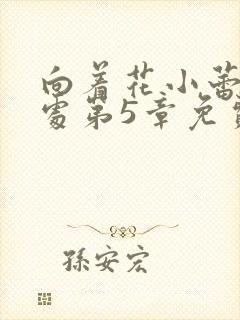 向着花小蕾
处第5章免
孫安宏